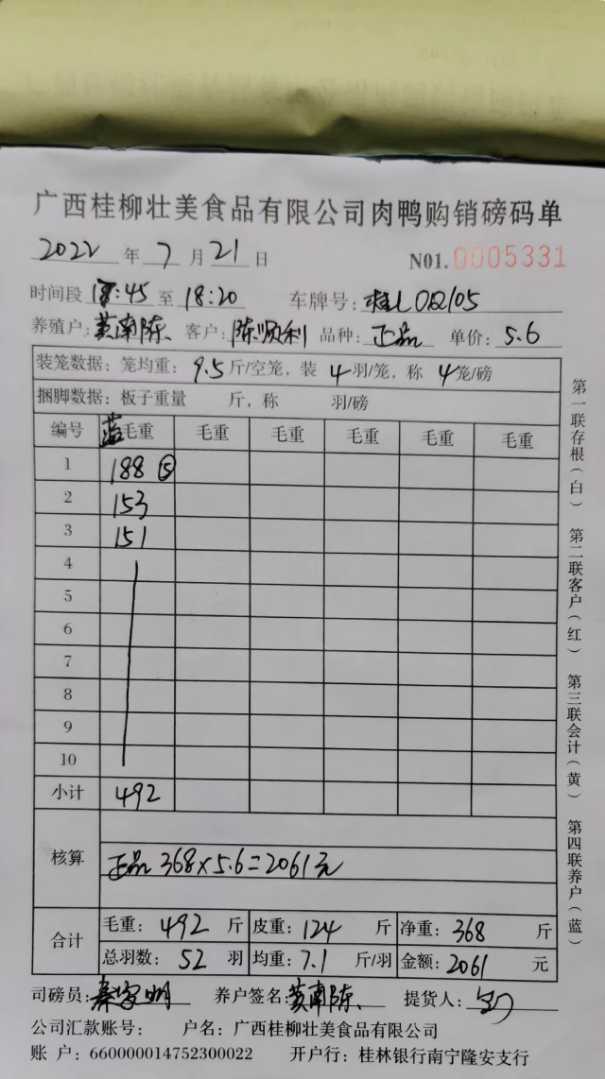 广西桂柳壮美食品有限公司肉鸭购销磅码单
2022年7月21日 N01.0005331
时间段 18:45 至 18:20 车牌号:
养殖户: 黄南陈 客户: 陈顺利 品种: 正品 单价: 5.6
装笼数据: 笼均重: 9.5斤/空笼, 装4羽/笼, 称4笼/磅
捆脚数据: 板子重量 斤, 称 羽/磅
编号 蓝毛重 毛重 毛重 毛重 毛重 毛重
1 188 ⑤
2 153
3 151
4
5
6
7
8
9
10
小计 492
核算 正品 368×5.6=2061元
合计 毛重: 492 斤 皮重: 124 斤 净重: 368 斤
总羽数: 52 羽 均重: 7.1 斤/羽 金额: 2061 元
司磅员: 养户签名: 黄南陈 提货人:
公司汇款账号: 户名: 广西桂柳壮美食品有限公司
账户: 660000014752300022 开户行: 桂林银行南宁隆安支行
第一联存根(白) 第二联客户(红) 第三联会计(黄) 第四联养户(蓝)